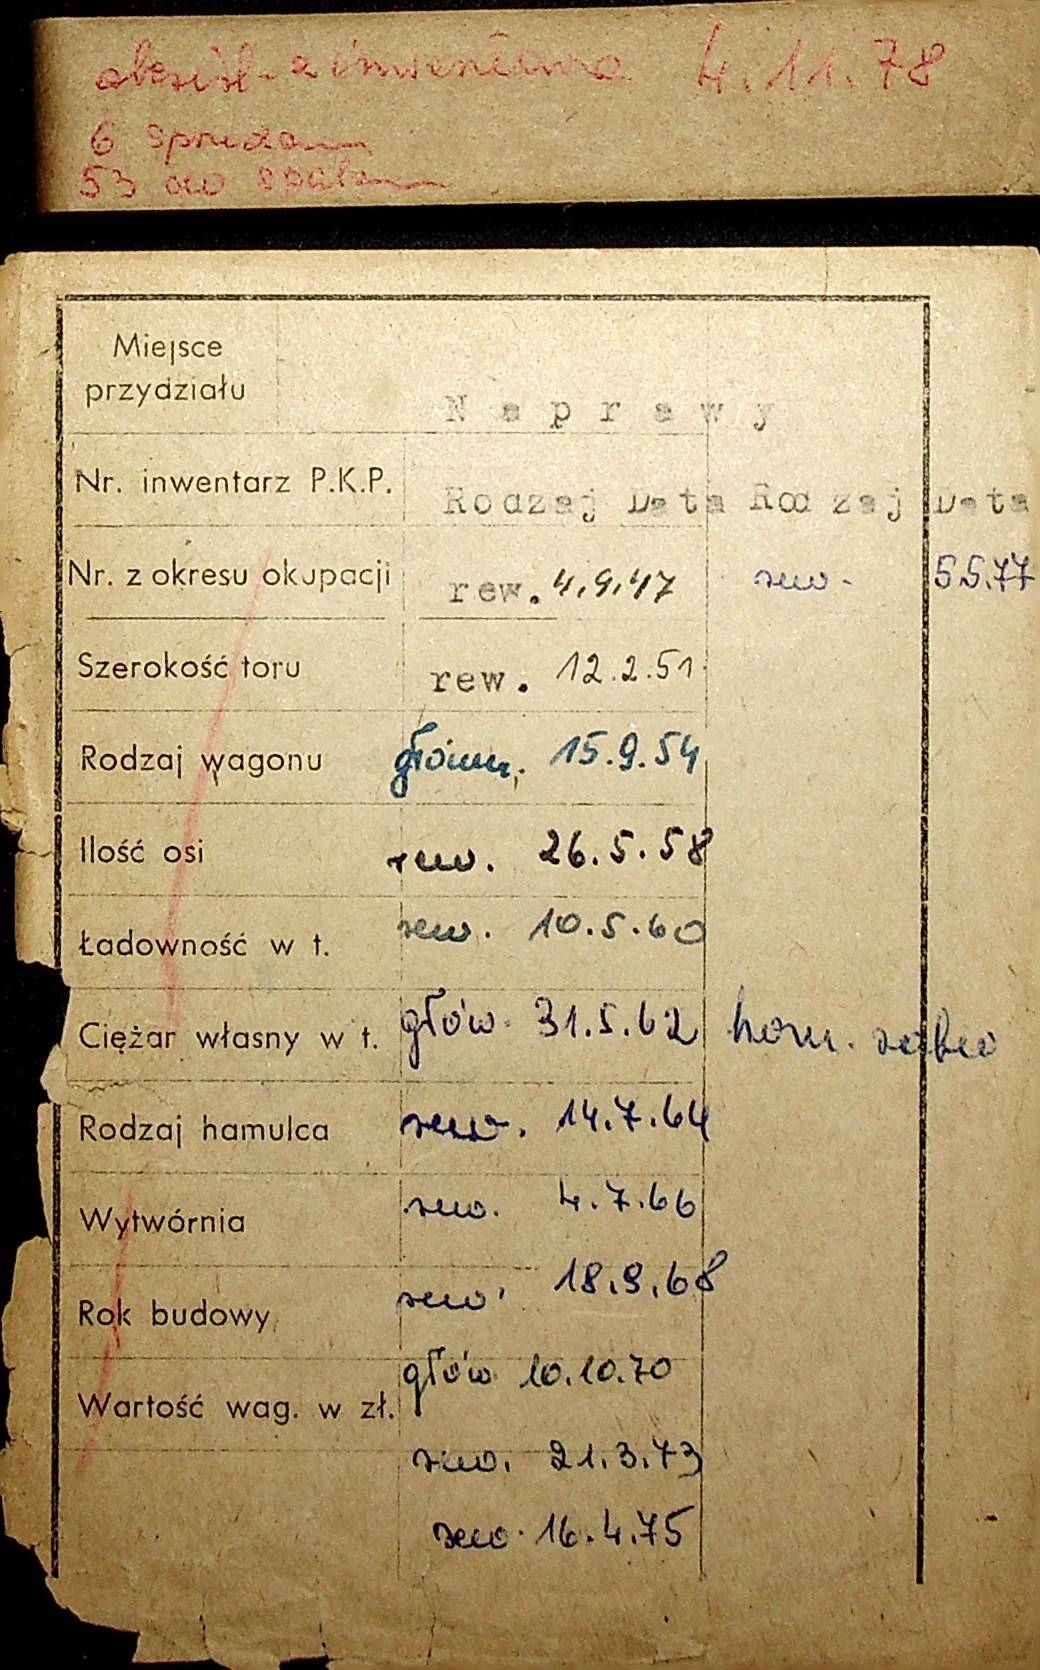 z inwentarza 4.11.78
6
53 do
Miejsce
przydziału
Naprawy
Nr. inwentarz P.K.P.
Rodzaj Data Rodzaj Data
Nr. z okresu okupacji rew. 4.9.47 rew. 5.5.77
Szerokość toru rew. 12.2.51
Rodzaj wagonu główn. 15.9.54
Ilość osi rew. 26.5.58
Ładowność w t. rew. 10.5.60
Ciężar własny w t. głów. 31.5.62 ham.
Rodzaj hamulca rew. 14.7.64
Wytwórnia rew. 4.7.66
Rok budowy rew. 18.9.68
głów 10.10.70
Wartość wag. w zł.
rew. 21.3.73
rew. 16.4.75